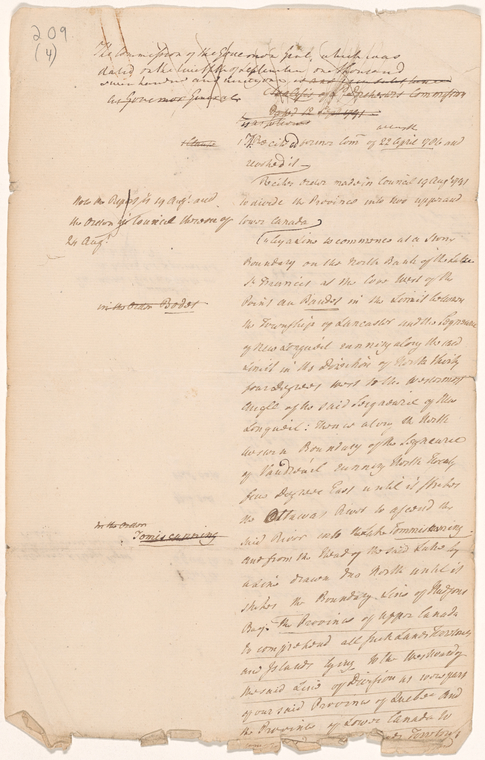 209
(4)
The Commission of the Governor Genl, which was
dated on the twelfth September one thousand
seven hundred and ninety one
as Governor General
Commission
Dated 12 Sep 1791
1 Recited former Com of 22 April 1786 and
revoked it
Recites order made in Council 19 Augt 1791
to divide the Province into two upper and
lower Canada
Note the Report is 19 Augt and
the Order of Council thereon of
24 Augt
to commence at a Stone
Boundary on the North Bank of the Lake
St Francis at the Cove West of the
Point au Baudet in the Limit between
the Township of Lancaster and the Seigneurie
of New Longueil running along the said
Limit in the Direction of North thirty
four degrees West to the Westernmost
Angle of the said Seigneurie of New
Longueil: thence along the North
western Boundary of the Seigneurie
of Vaudreuil running North twenty
five Degrees East until it strikes
the Ottawas River to ascend the
said River into the Lake Tommiscanning
and from the Head of the said Lake by
a Line drawn due North until it
strikes the Boundary Line of Hudsons
Bay. The Province of Upper Canada
to comprehend all such Lands Territories
and Islands lying to the Westward of
the said Line of Division as were part
of our said Province of Quebec and
the Province of Lower Canada to
in the Order Bodet
in the Order
Tomiscanning